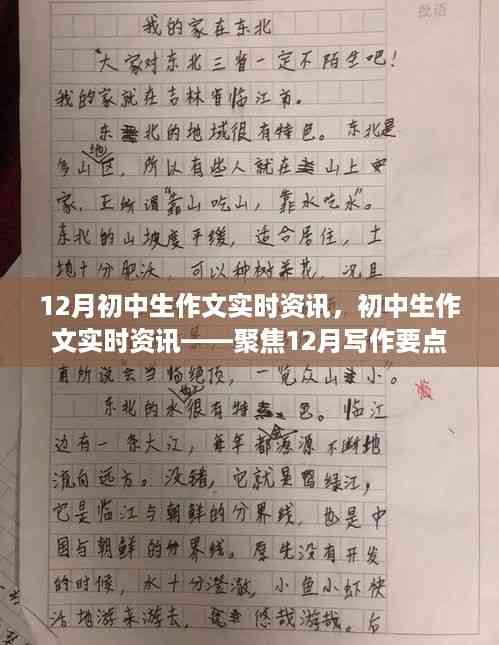 批语
我的家在东北
"大家对东北三省一定不陌生吧！
我的家就在吉林省临江市。
东北的地域很有特色。东北是
多山地区，所以有些人就在山上安
家，正所谓"靠山吃山，靠水吃水"。
东北的山坡度平缓，适合居住，土
地十分肥沃，可以种树养花，况且
12月初中生作文实时资讯，初中生作
文实时资讯——聚焦12月写作要点
有所说会当临绝顶，一览众山小"。
东北的水很有特色。临江
边有一条大江，每年都会源源不断地
流向远方。没错，它就是鸭绿江，
它是临江与朝鲜的分界线，也是中
国与朝鲜的分界线。原先没有开发
的时候，水十分澄澈，小鱼小虾快
活地游来游去，悠哉游哉。后